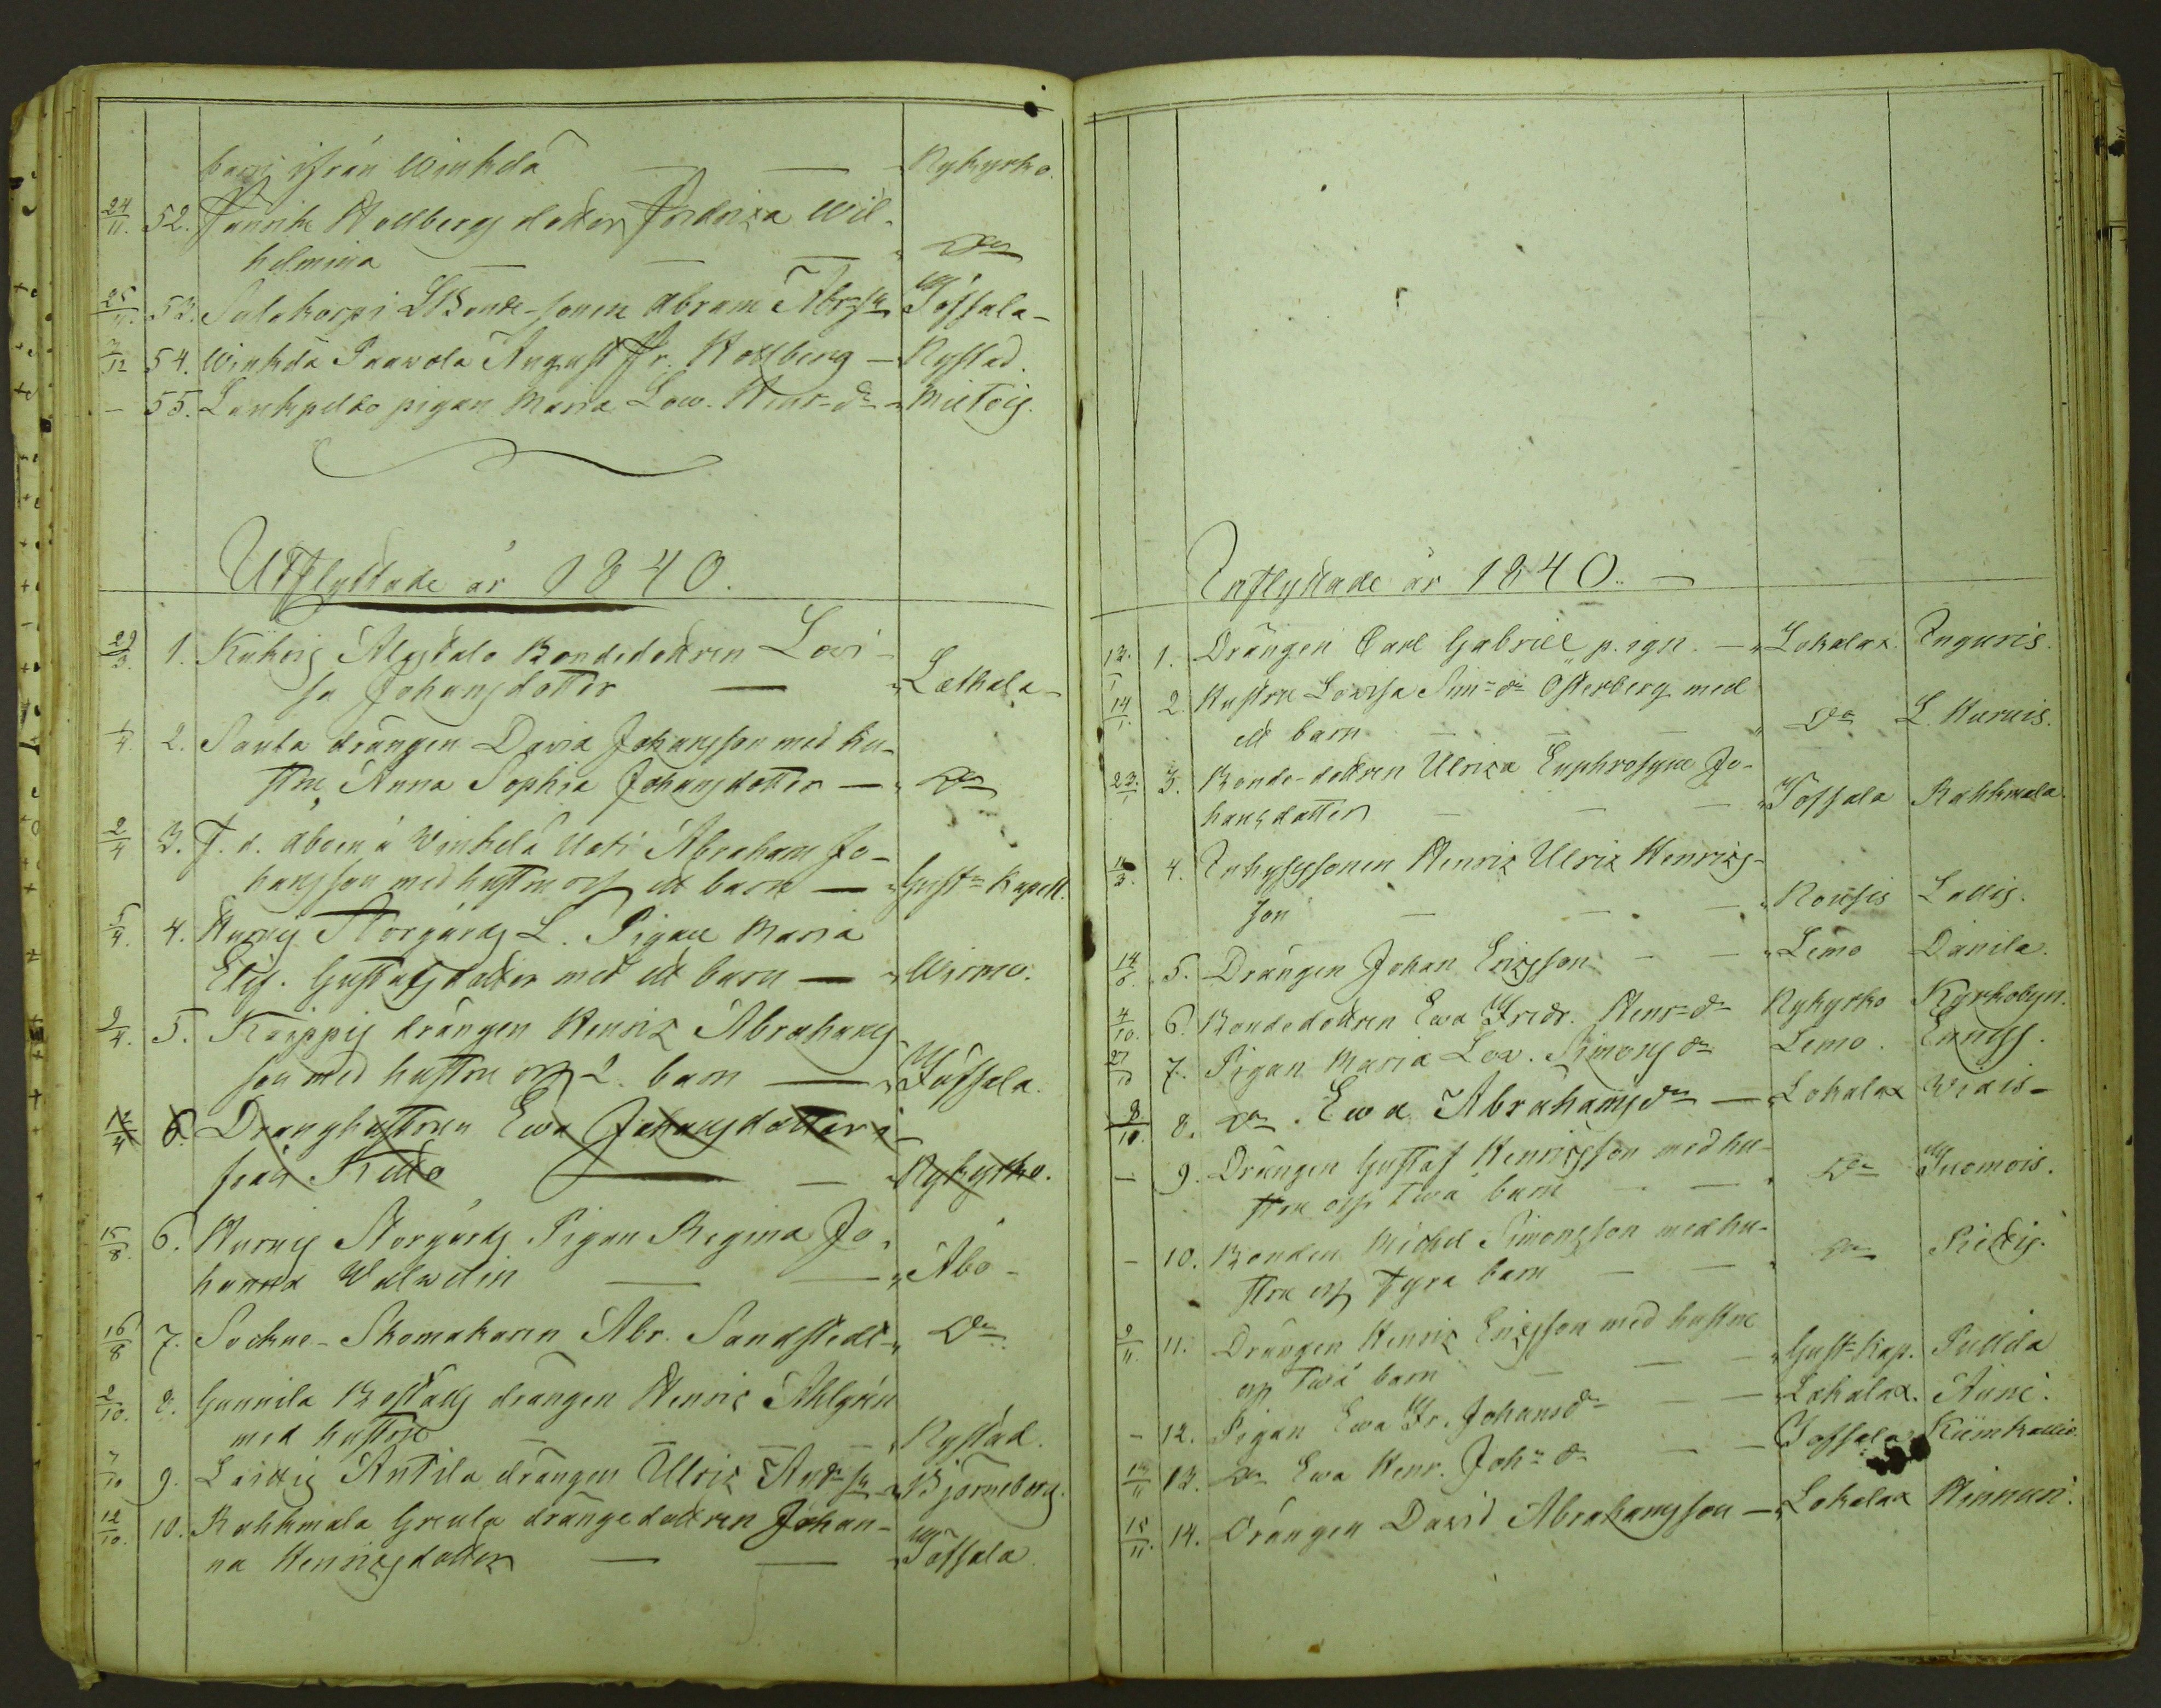 barn ifrån Winkelä — — Nykyrko.
24/11. 52. Henrik Hellbergs dotter Fredrica Wil-
helmina — — — Do
25/11. 53. Salokorpi LBonde-sonen Abram Abrsn Töfsala
/12 54. Winkelä Paavola August Fr. Hellberg — Nystad.
— 55. Lankpelto pigan Maria Lov. Henr-dr Mietois.
Utflyttade år 1840.
29/3. 1. Alastalo Bondedottren Lovi-
sa Johansdotter — Letkala
1/4. 2. Santa drängen David Johansson med hu-
stru Anna Sophia Johansdotter — Do
2/4 3. F. d. åboen å Winkelä Uoti Abraham Jo-
hansson med hustru och ett barn — Gust:s Kapell.
5/4. 4. Hurnis Storgårds L. Pigan Maria
Elis. Gustafsdotter med ett barn — Wirmo.
9/4. 5. Kaippis drängen Henric Abrahams
son med hustru och 2 barn — Töfsala.
12/4 6. Dränghustrun Ewa Johansdotter i
från Killo — — Nykyrko.
15/8. 6. Hurnis Storgårds Pigan Regina Jo-
hanna Walvelin — — Åbo
16/8 7. Sockne-Skomakaren Abr. Sandstedt Do
2/10. 8. Gunnila Boställs drängen Henric Ahlgrén
med hustru — — Nystad.
7/10 9. Laittis Antila drängen Ulric Andrsn Björneborg.
12/10. 10. Rahkmala Greula drängedottren Johan-
na Henricsdotter — — Töfsala.
Inflyttade år 1840. —
12./1 1. Drängen Carl Gabriel p. ign. — Lokalax. Inguris.
14/1 2. Hustru Lovisa Sim-dr Österberg med
ett barn — — — Do L. Hurnis.
23./1 3. Bonde-dottren Ulrica Euphrosyne Jo-
hansdotter — — — Töfsala Rahkmala.
11/3. 4. Inhysessonen Henric Ulric Henrics-
son — — — Nousis Lallis.
14/6. 5. Drängen Johan Ericsson — — Lemo Danila.
4/10. 6. Bondedottren Ewa Fredr. Henr-dr Nykyrko Kyrkobyn.
27/10 7. Pigan Maria Lov. Simons dr Lemo.
8/10. 8. Do Ewa Abrahams dr — Lokalax Widis
— 9. Drängen Gustaf Henricsson med hu-
stru och två barn — — Do Tuomois.
— 10. Bonden Michel Simonsson med hu-
stru och fyra barn — — Do
9/11. 11. Drängen Henric Ericsson med hustru
och två barn — — — Gust:s Kap. Pullila
— 12. Pigan Ewa Fr. Johans dr — — Lokalax.
14/11 13. Do Ewa Henr. Joh:s dr — — Töfsala Kiimkallio.
15/11. 14. Drängen David Abrahamsson — Lokalax